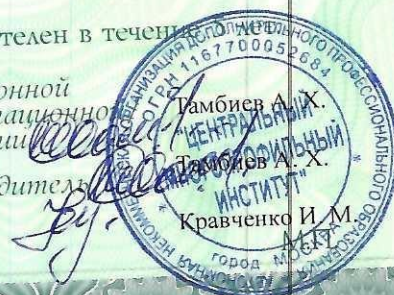 телен в течение 5 лет
онной
ационной
Тамбиев А. Х.
дитель
Тамбиев А. Х.
Кравченко И. М.
М.П.
ОРГАНИЗАЦИЯ ДОПОЛНИТЕЛЬНОГО ПРОФЕССИОНАЛЬНОГО ОБРАЗОВАНИЯ
ОГРН 1167700052684
"ЦЕНТРАЛЬНЫЙ
МНОГОПРОФИЛЬНЫЙ
ИНСТИТУТ"
ГОРОД МОСКВА